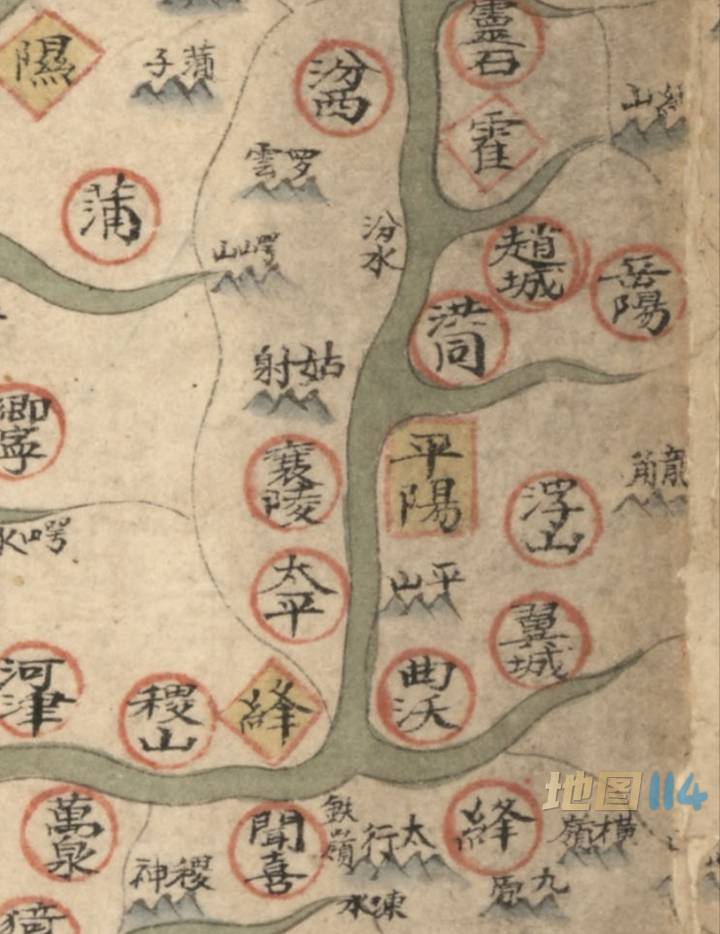 靈石
隰
蒲子
汾西
霍
雲罗
蒲
汾水
趙城
岳陽
洪同
姑射
平陽
襄陵
浮山
太平
平山
翼城
曲沃
河津
稷山
絳
萬泉
聞喜
太行
絳
横嶺
稷神
九原
涑水
地图114